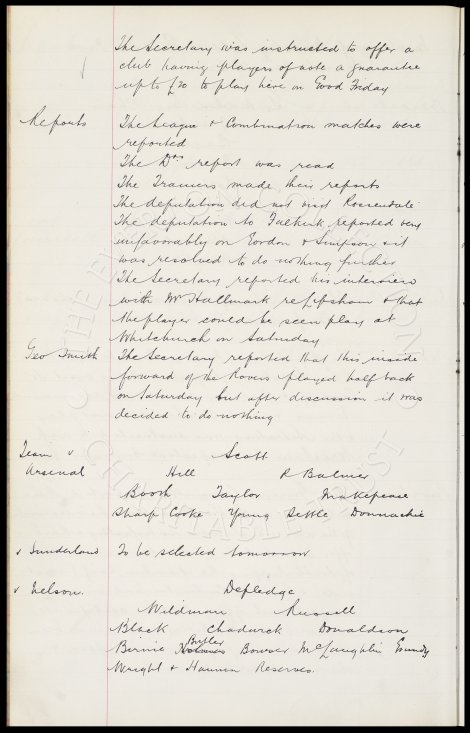 The Secretary was instructed to offer a
club having players of note a guarantee
up to £20 to play here on Good Friday
Reports The League & Combination matches were
reported
The Drs report was read
The Trainers made their reports
The deputation did not visit Rossendale
The deputation to Falkirk reported very
unfavorably on Gordon & Simpson & it
was resolved to do nothing further
The Secretary reported his interview
with Mr Hallmark re Upsham & that
the player could be seen play at
Whitchurch on Saturday
Geo Smith The Secretary reported that this inside
forward of the Rovers played half back
on Saturday but after discussion it was
decided to do nothing
Team v Scott
Arsenal Hill R Balmer
Booth Taylor Makepeace
Sharp Cooke Young Settle Donnachie
v Sunderland To be selected tomorrow
v Nelson. Depledge
Wildman Russell
Black Chadwick Donaldson
Butler
Birnie Bowser McLaughlin
Wright & Reserves.